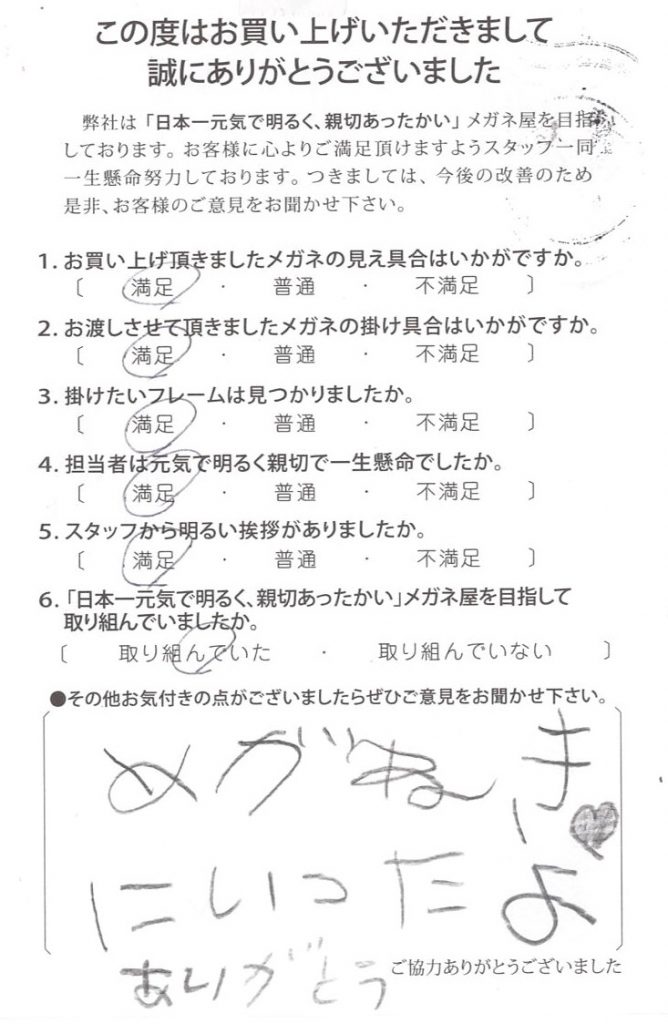 この度はお買い上げいただきまして
誠にありがとうございました
弊社は「日本一元気で明るく、親切あったかい」メガネ屋を目指
しております。お客様に心よりご満足頂けますようスタッフ一同
一生懸命努力しております。つきましては、今後の改善のため
是非、お客様のご意見をお聞かせ下さい。
1. お買い上げ頂きましたメガネの見え具合はいかがですか。
〔 満足 ・ 普通 ・ 不満足 〕
2. お渡しさせて頂きましたメガネの掛け具合はいかがですか。
〔 満足 ・ 普通 ・ 不満足 〕
3. 掛けたいフレームは見つかりましたか。
〔 満足 ・ 普通 ・ 不満足 〕
4. 担当者は元気で明るく親切で一生懸命でしたか。
〔 満足 ・ 普通 ・ 不満足 〕
5. スタッフから明るい挨拶がありましたか。
〔 満足 ・ 普通 ・ 不満足 〕
6. 「日本一元気で明るく、親切あったかい」メガネ屋を目指して
取り組んでいましたか。
〔 取り組んでいた ・ 取り組んでいない 〕
●その他お気付きの点がございましたらぜひご意見をお聞かせ下さい。
めがねき
にいったよ
ありがとう
ご協力ありがとうございました